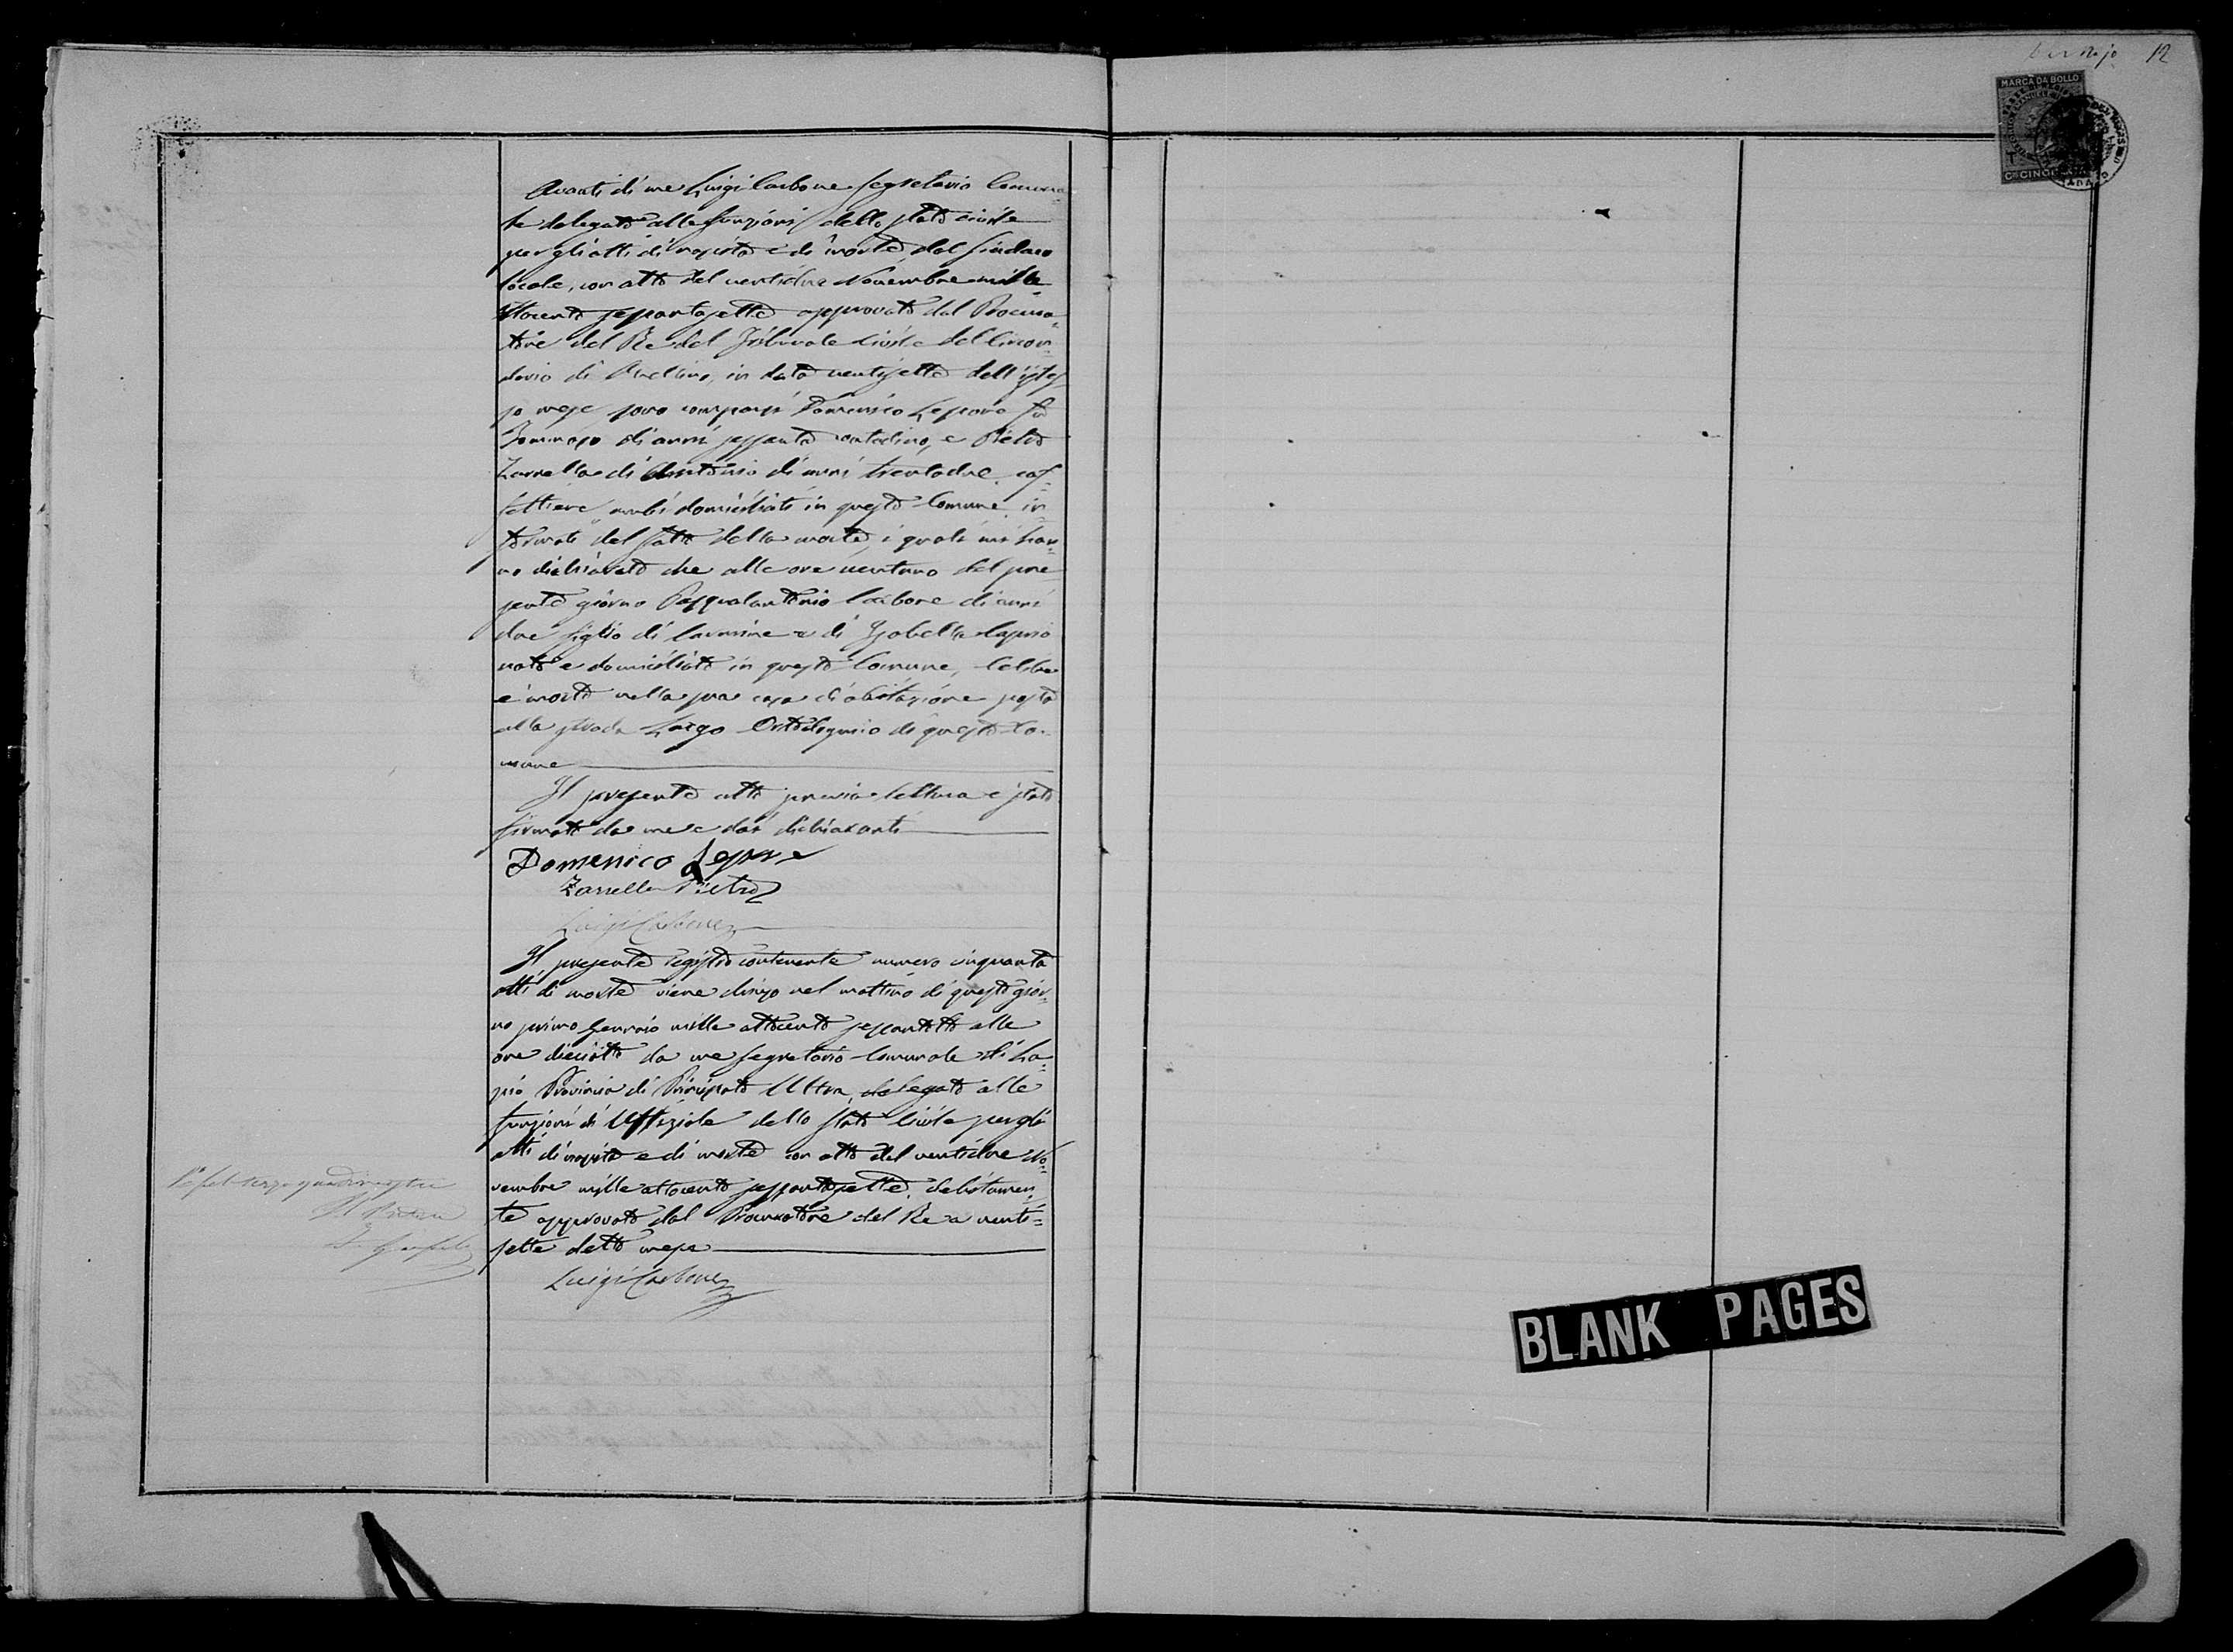 Avanti di me Luigi Carbone Segretario Comuna=
le delegato alle funzioni dello stato civile
per gli atti di nascita e di morte dal Sindaco
locale, con atto del ventidue Novembre mille
ottocento settantasette approvato dal Procura=
tore del Re del Tribunale Civile del Circon=
dario di Avellino, in data ventisette dell'istes
so mese sono comparsi Domenico Lepore fu
Tommaso di anni sessanta contadino, e Pietro
Zarrella di Antonio di anni trentadue caf=
fettiere ambi domiciliati in questo Comune in=
formati del fatto della morte, i quali mi han=
no dichiarato che alle ore ventuno del pre
sente giorno Pasqualantonio Carbone di anni
due figlio di Carmine e di Isabella
nato e domiciliato in questo Comune, Celibe
è morto nella sua casa di abitazione posta
alla strada Largo di questo Co=
mune
Il presente atto previa lettura è stato
firmato da me e dai dichiaranti
Domenico Lepore
Zarrella Pietro
Luigi Carbone
Il presente registro contenente numero cinquanta
atti di morte viene chiuso nel mattino di questo gior=
no primo Gennaio mille ottocento settantotto alle
ore dieciotto da me Segretario Comunale di La=
pio Provincia di Principato Ultra, delegato alle
funzioni di Uffiziale dello Stato Civile per gli
atti di nascita e di morte con atto del ventidue No=
vembre mille ottocento settantasette, debitamen=
te approvato dal Procuratore del Re a venti=
sette detto mese
Luigi Carbone
terzo quadrimestre
Il Pretore
12
MARCA DA BOLLO
BLANK PAGES